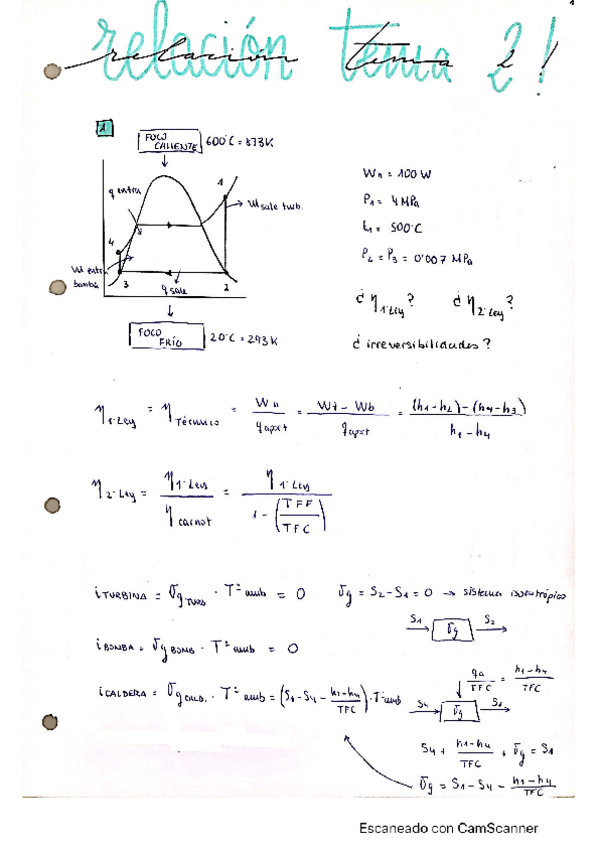 1
relación tema 2!
relación tema 2!
1
FOCO CALIENTE 600°C = 873K
q entra
1
W sale turb.
4
W entra bomba
3
q sale
2
FOCO FRÍO 20°C = 293K
Wn = 100 W
P1 = 4 MPa
t1 = 500°C
P2 = P3 = 0'007 MPa
¿ η1ªLey ? ¿ η2ªLey ?
¿ irreversibilidades ?
η1ªLey = ηTérmico = Wn / qapxt = Wt - Wb / qapxt = (h1-h2)-(h4-h3) / h1-h4
η2ªLey = η1ªLey / ηcarnot = η1ªLey / 1 - (TFF / TFC)
iTURBINA = σg TURB · Tª amb = 0 σg = S2 - S1 = 0 → sistema isoentrópico
S1 σg S2
iBOMBA = σg BOMB · Tª amb = 0
iCALDERA = σg CALD. · Tª amb = (S1 - S4 - h1-h4 / TFC) · Tª amb
qa / TFC = h1-h4 / TFC
S4 σg S1
S4 + h1-h4 / TFC + σg = S1
σg = S1 - S4 - h1-h4 / TFC
Escaneado con CamScanner